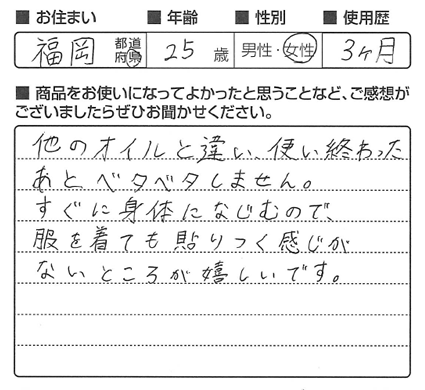 ■ お住まい ■ 年齢 ■ 性別 ■ 使用歴
福岡 都道府県 25 歳 男性・女性 3ヶ月
■ 商品をお使いになってよかったと思うことなど、ご感想が
ございましたらぜひお聞かせください。
他のオイルと違い、使い終わった
あとベタベタしません。
すぐに身体になじむので、
服を着ても貼りつく感じが
ないところが嬉しいです。